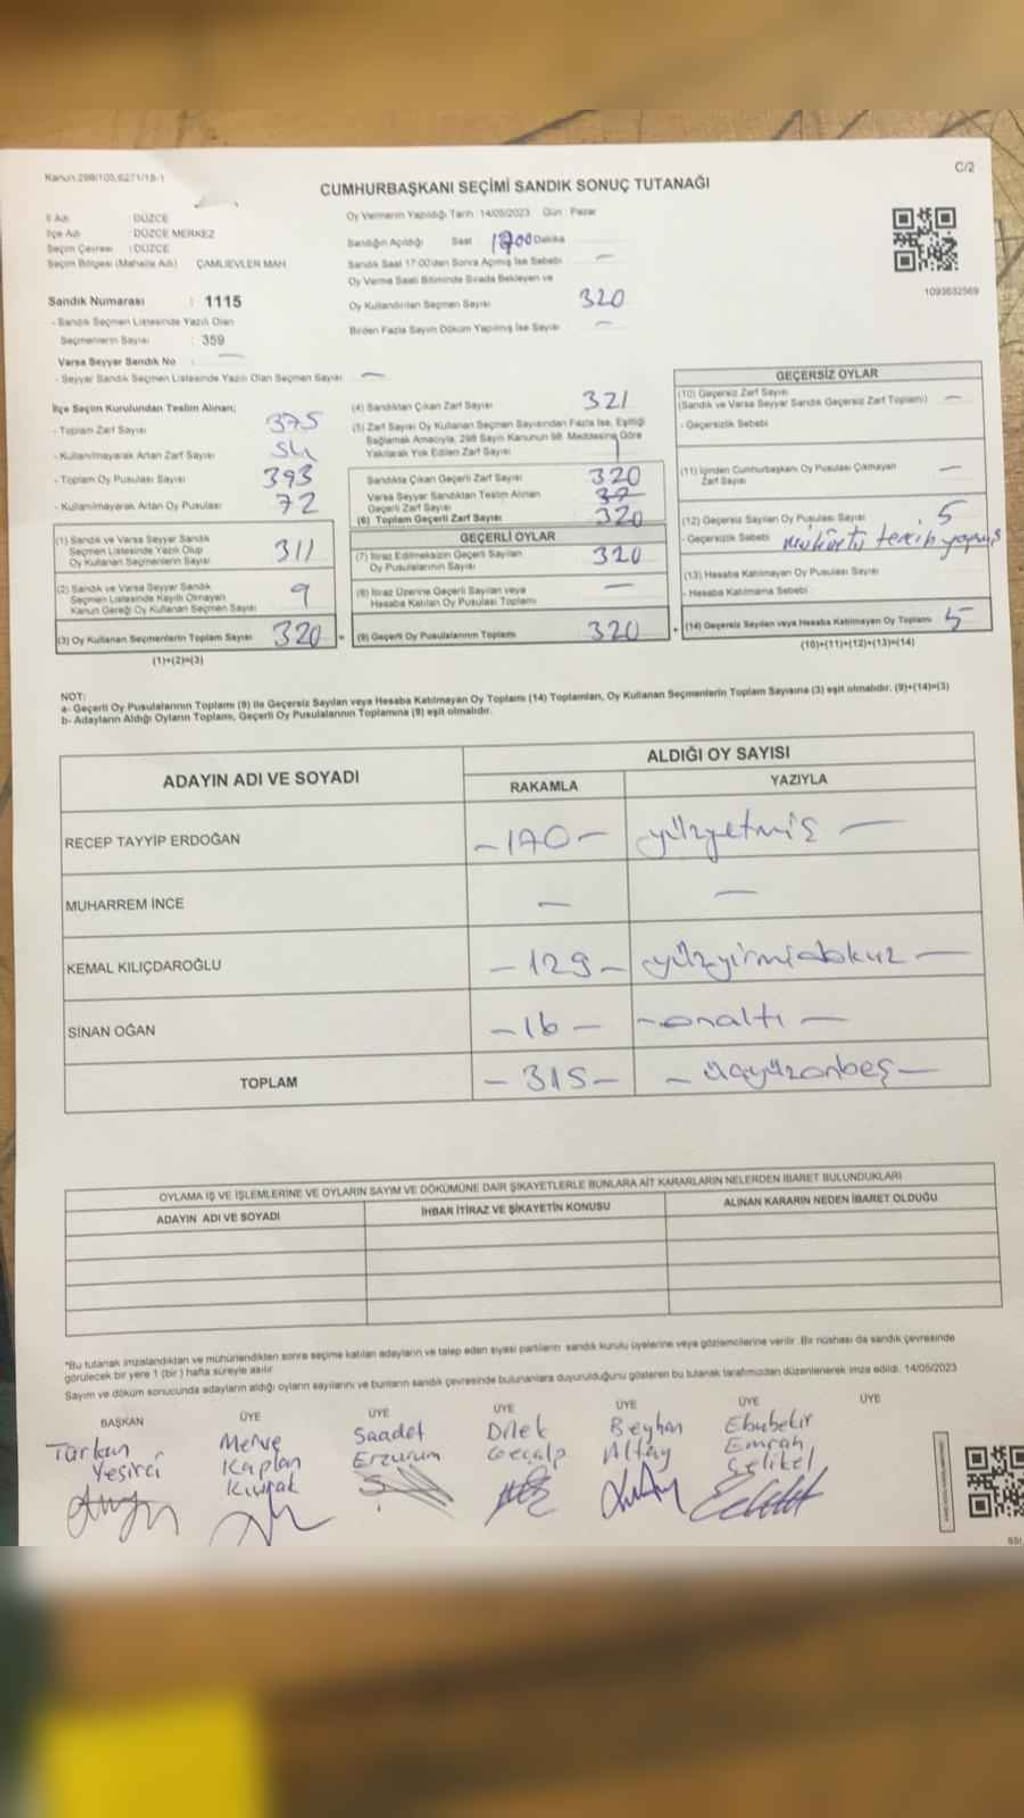 Kanun:298/105,6271/18-1
C/2
CUMHURBAŞKANI SEÇİMİ SANDIK SONUÇ TUTANAĞI
İl Adı : DÜZCE
İlçe Adı : DÜZCE MERKEZ
Seçim Çevresi : DÜZCE
Seçim Bölgesi (Mahalle Adı) ÇAMLIEVLER MAH
Sandık Numarası : 1115
- Sandık Seçmen Listesinde Yazılı Olan
Seçmenlerin Sayısı : 359
Varsa Seyyar Sandık No —
- Seyyar Sandık Seçmen Listesinde Yazılı Olan Seçmen Sayısı —
Oy Vermenin Yapıldığı Tarih : 14/05/2023 Gün : Pazar
Sandığın Açıldığı Saat 1700 Dakika
Sandık Saat 17:00'den Sonra Açılmış İse Sebebi —
Oy Verme Saati Bitiminde Sırada Bekleyen ve
Oy Kullandırılan Seçmen Sayısı 320
Birden Fazla Sayım Döküm Yapılmış İse Sayısı —
1093632569
İlçe Seçim Kurulundan Teslim Alınan;
- Toplam Zarf Sayısı 375
- Kullanılmayarak Artan Zarf Sayısı 54
- Toplam Oy Pusulası Sayısı 393
- Kullanılmayarak Artan Oy Pusulası 72
(1) Sandık ve Varsa Seyyar Sandık
Seçmen Listesinde Yazılı Olup
Oy Kullanan Seçmenlerin Sayısı 311
(2) Sandık ve Varsa Seyyar Sandık
Seçmen Listesinde Kayıtlı Olmayan
Kanun Gereği Oy Kullanan Seçmen Sayısı 9
(3) Oy Kullanan Seçmenlerin Toplam Sayısı 320 =
(1)+(2)=(3)
(4) Sandıktan Çıkan Zarf Sayısı 321
(5) Zarf Sayısı Oy Kullanan Seçmen Sayısından Fazla İse, Eşitliği
Sağlamak Amacıyla, 298 Sayılı Kanunun 98. Maddesine Göre
Yakılarak Yok Edilen Zarf Sayısı 1
Sandıkta Çıkan Geçerli Zarf Sayısı 320
Varsa Seyyar Sandıktan Teslim Alınan
Geçerli Zarf Sayısı
(6) Toplam Geçerli Zarf Sayısı 320
GEÇERLİ OYLAR
(7) İtiraz Edilmeksizin Geçerli Sayılan
Oy Pusulalarının Sayısı 320
(8) İtiraz Üzerine Geçerli Sayılan veya
Hesaba Katılan Oy Pusulası Toplamı —
(9) Geçerli Oy Pusulalarının Toplamı 320 +
GEÇERSİZ OYLAR
(10) Geçersiz Zarf Sayısı
(Sandık ve Varsa Seyyar Sandık Geçersiz Zarf Toplamı) —
- Geçersizlik Sebebi
(11) İçinden Cumhurbaşkanı Oy Pusulası Çıkmayan
Zarf Sayısı —
(12) Geçersiz Sayılan Oy Pusulası Sayısı 5
- Geçersizlik Sebebi tercih
(13) Hesaba Katılmayan Oy Pusulası Sayısı
- Hesaba Katılmama Sebebi
(14) Geçersiz Sayılan veya Hesaba Katılmayan Oy Toplamı 5
(10)+(11)+(12)+(13)=(14)
NOT:
a- Geçerli Oy Pusulalarının Toplamı (9) ile Geçersiz Sayılan veya Hesaba Katılmayan Oy Toplamı (14) Toplamları, Oy Kullanan Seçmenlerin Toplam Sayısına (3) eşit olmalıdır. (9)+(14)=(3)
b- Adayların Aldığı Oyların Toplamı, Geçerli Oy Pusulalarının Toplamına (9) eşit olmalıdır.
ADAYIN ADI VE SOYADI
ALDIĞI OY SAYISI
RAKAMLA YAZIYLA
RECEP TAYYİP ERDOĞAN -170- yüzyetmiş —
MUHARREM İNCE — —
KEMAL KILIÇDAROĞLU -129- yüzyirmidokuz —
SİNAN OĞAN -16- -onaltı —
TOPLAM -315- - üçyüzonbeş -
OYLAMA İŞ VE İŞLEMLERİNE VE OYLARIN SAYIM VE DÖKÜMÜNE DAİR ŞİKAYETLERLE BUNLARA AİT KARARLARIN NELERDEN İBARET BULUNDUKLARI
ADAYIN ADI VE SOYADI İHBAR İTİRAZ VE ŞİKAYETİN KONUSU ALINAN KARARIN NEDEN İBARET OLDUĞU
*Bu tutanak imzalandıktan ve mühürlendikten sonra seçime katılan adayların ve talep eden siyasi partilerin sandık kurulu üyelerine veya gözlemcilerine verilir. Bir nüshası da sandık çevresinde
görülecek bir yere 1 (bir) hafta süreyle asılır.
Sayım ve döküm sonucunda adayların aldığı oyların sayılarını ve bunların sandık çevresinde bulunanlara duyurulduğunu gösteren bu tutanak tarafımızdan düzenlenerek imza edildi. 14/05/2023
BAŞKAN ÜYE ÜYE ÜYE ÜYE ÜYE ÜYE
Tarkan Merve Saadet Dilek Beyhan Ebubekir
Yeşirci Kaplan Erzurum Altay Emrah
Çelikel